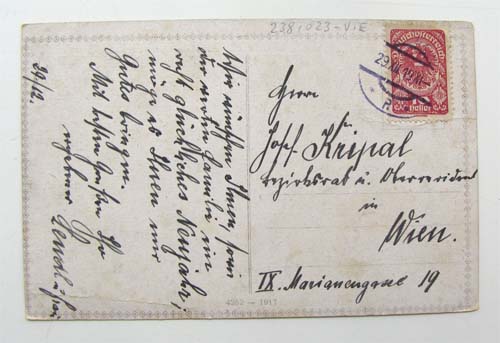 238,023-VIE
Deutschösterreich
Heller
29.XII.19
24/12.
Wir wünschen Ihnen, sowie
der werten Familie ein
recht glückliches Neujahr,
möge es Ihnen nur
Gutes bringen.
Mit besten Grüßen Ihr
ergebener
Herrn
Josef Kripal
Bezirksrat u. Oberrevident
in
Wien.
IX. Mariannengasse 19
4262 — 1917